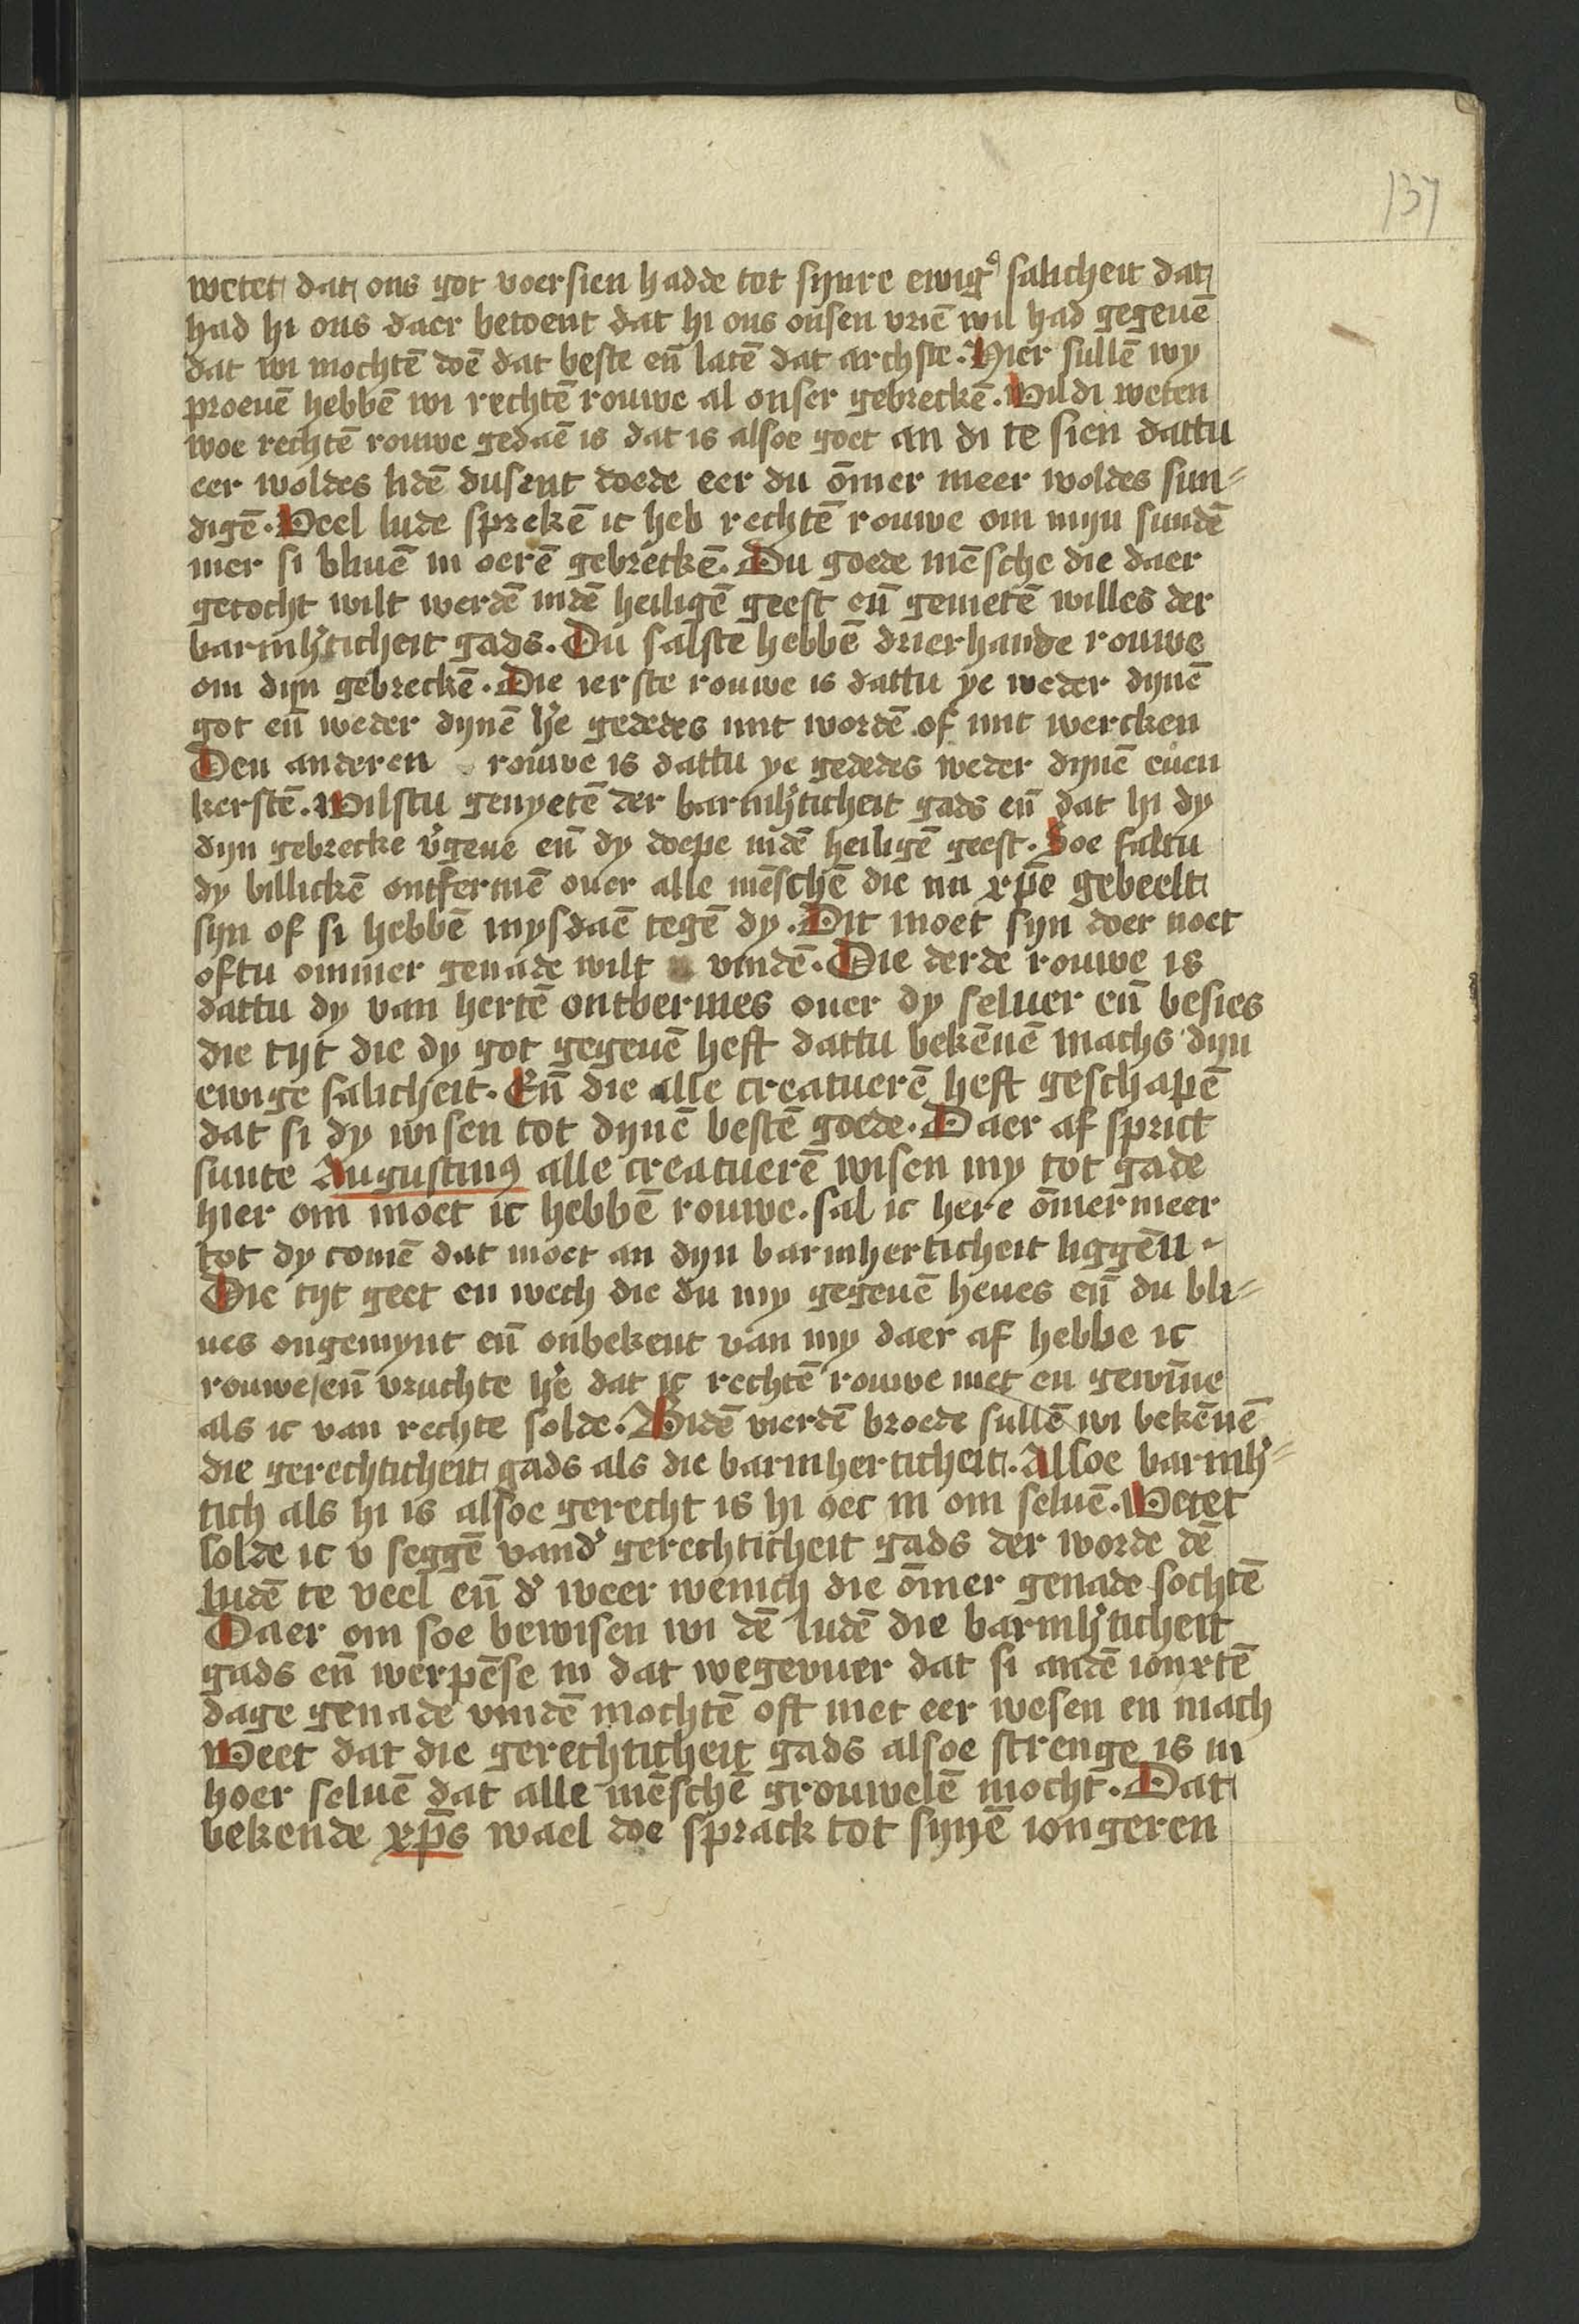 137
wetet dat ons got voersien hadde tot synre ewigꝰ salicheit dat
had hi ons daer betoent dat hi ons onsen vriē wil had gegeuē
dat wi mochtē doē dat beste en̄ latē dat archste. Hier sullē wy
proeuē hebbē wi rechtē rouwe al onser gebreckē. Wildi weten
woe rechtē rouwe gedaē is dat is alsoe goet an di te sien dattu
eer woldes lidē dusent doede eer du ōmer meer woldes sun-
digē. Veel lude sprekē ic heb rechtē rouwe om mijn sundē
mer si bliuē in oerē gebreckē. Du goede mēsche die daer
getocht wilt werdē indē heiligē geest en̄ genietē willes der
barmh'ticheit gads. Du salste hebbē drierhande rouwe
om dijn gebreckē. Die ierste rouwe is dattu ye weder dynē
got en̄ weder dynē h'e gededes mit wordē of mit wercken
Den anderen rouwe is dattu ye gededes weder dynē euen
kerstē. Wilstu genyetē der barmh'ticheit gads en̄ dat hi dy
dijn gebrecke v'geue en̄ dy doepe indē heiligē geest. Soe saltu
dy billickē ontfermē ouer alle mēschē die nu xp̄e gebeelt
sijn of si hebbē mysdaē tegē dy. Dit moet sijn doer noet
oftu ommer genade wilt vindē. Die derde rouwe is
dattu dy van hertē ontbermes ouer dy seluer en̄ besies
die tijt die dy got gegeuē heft dattu bekēnē machs dijn
ewige salicheit. En̄ die alle creatuerē heft geschapē
dat si dy wisen tot dynē bestē goede. Daer af sprict
sunte Augustinꝰ alle creatuerē wisen my tot gade
hier om moet ic hebbē rouwe. sal ic here ōmermeer
tot dy comē dat moet an dijn barmherticheit liggēn
Die tijt geet en wech die du my gegeuē heues en̄ du bli-
ues ongemynt en̄ onbekent van my daer af hebbe ic
rouwe/en̄ vruchte h'e dat ic rechtē rouwe niet en gewīne
als ic van rechte solde. Bidē vierdē broede sullē wi bekēnē
die gerechticheit gads als die barmherticheit. Alsoe barmh'-
tich als hi is alsoe gerecht is hi oec in om seluē. Wetet
solde ic v seggē vand' gerechticheit gads der worde dē
ludē te veel en̄ d' weer wenich die ōmer genade sochtē
Daer om soe bewisen wi dē ludē die barmh'ticheit
gads en̄ werpēse in dat wegevuer dat si andē ionxtē
dage genade vindē mochtē oft niet eer wesen en mach
Weet dat die gerechticheit gads alsoe strenge is in
hoer seluē dat alle mēschē grouwelē mocht. Dat
bekende xp̄s wael doe sprack tot synē iongeren